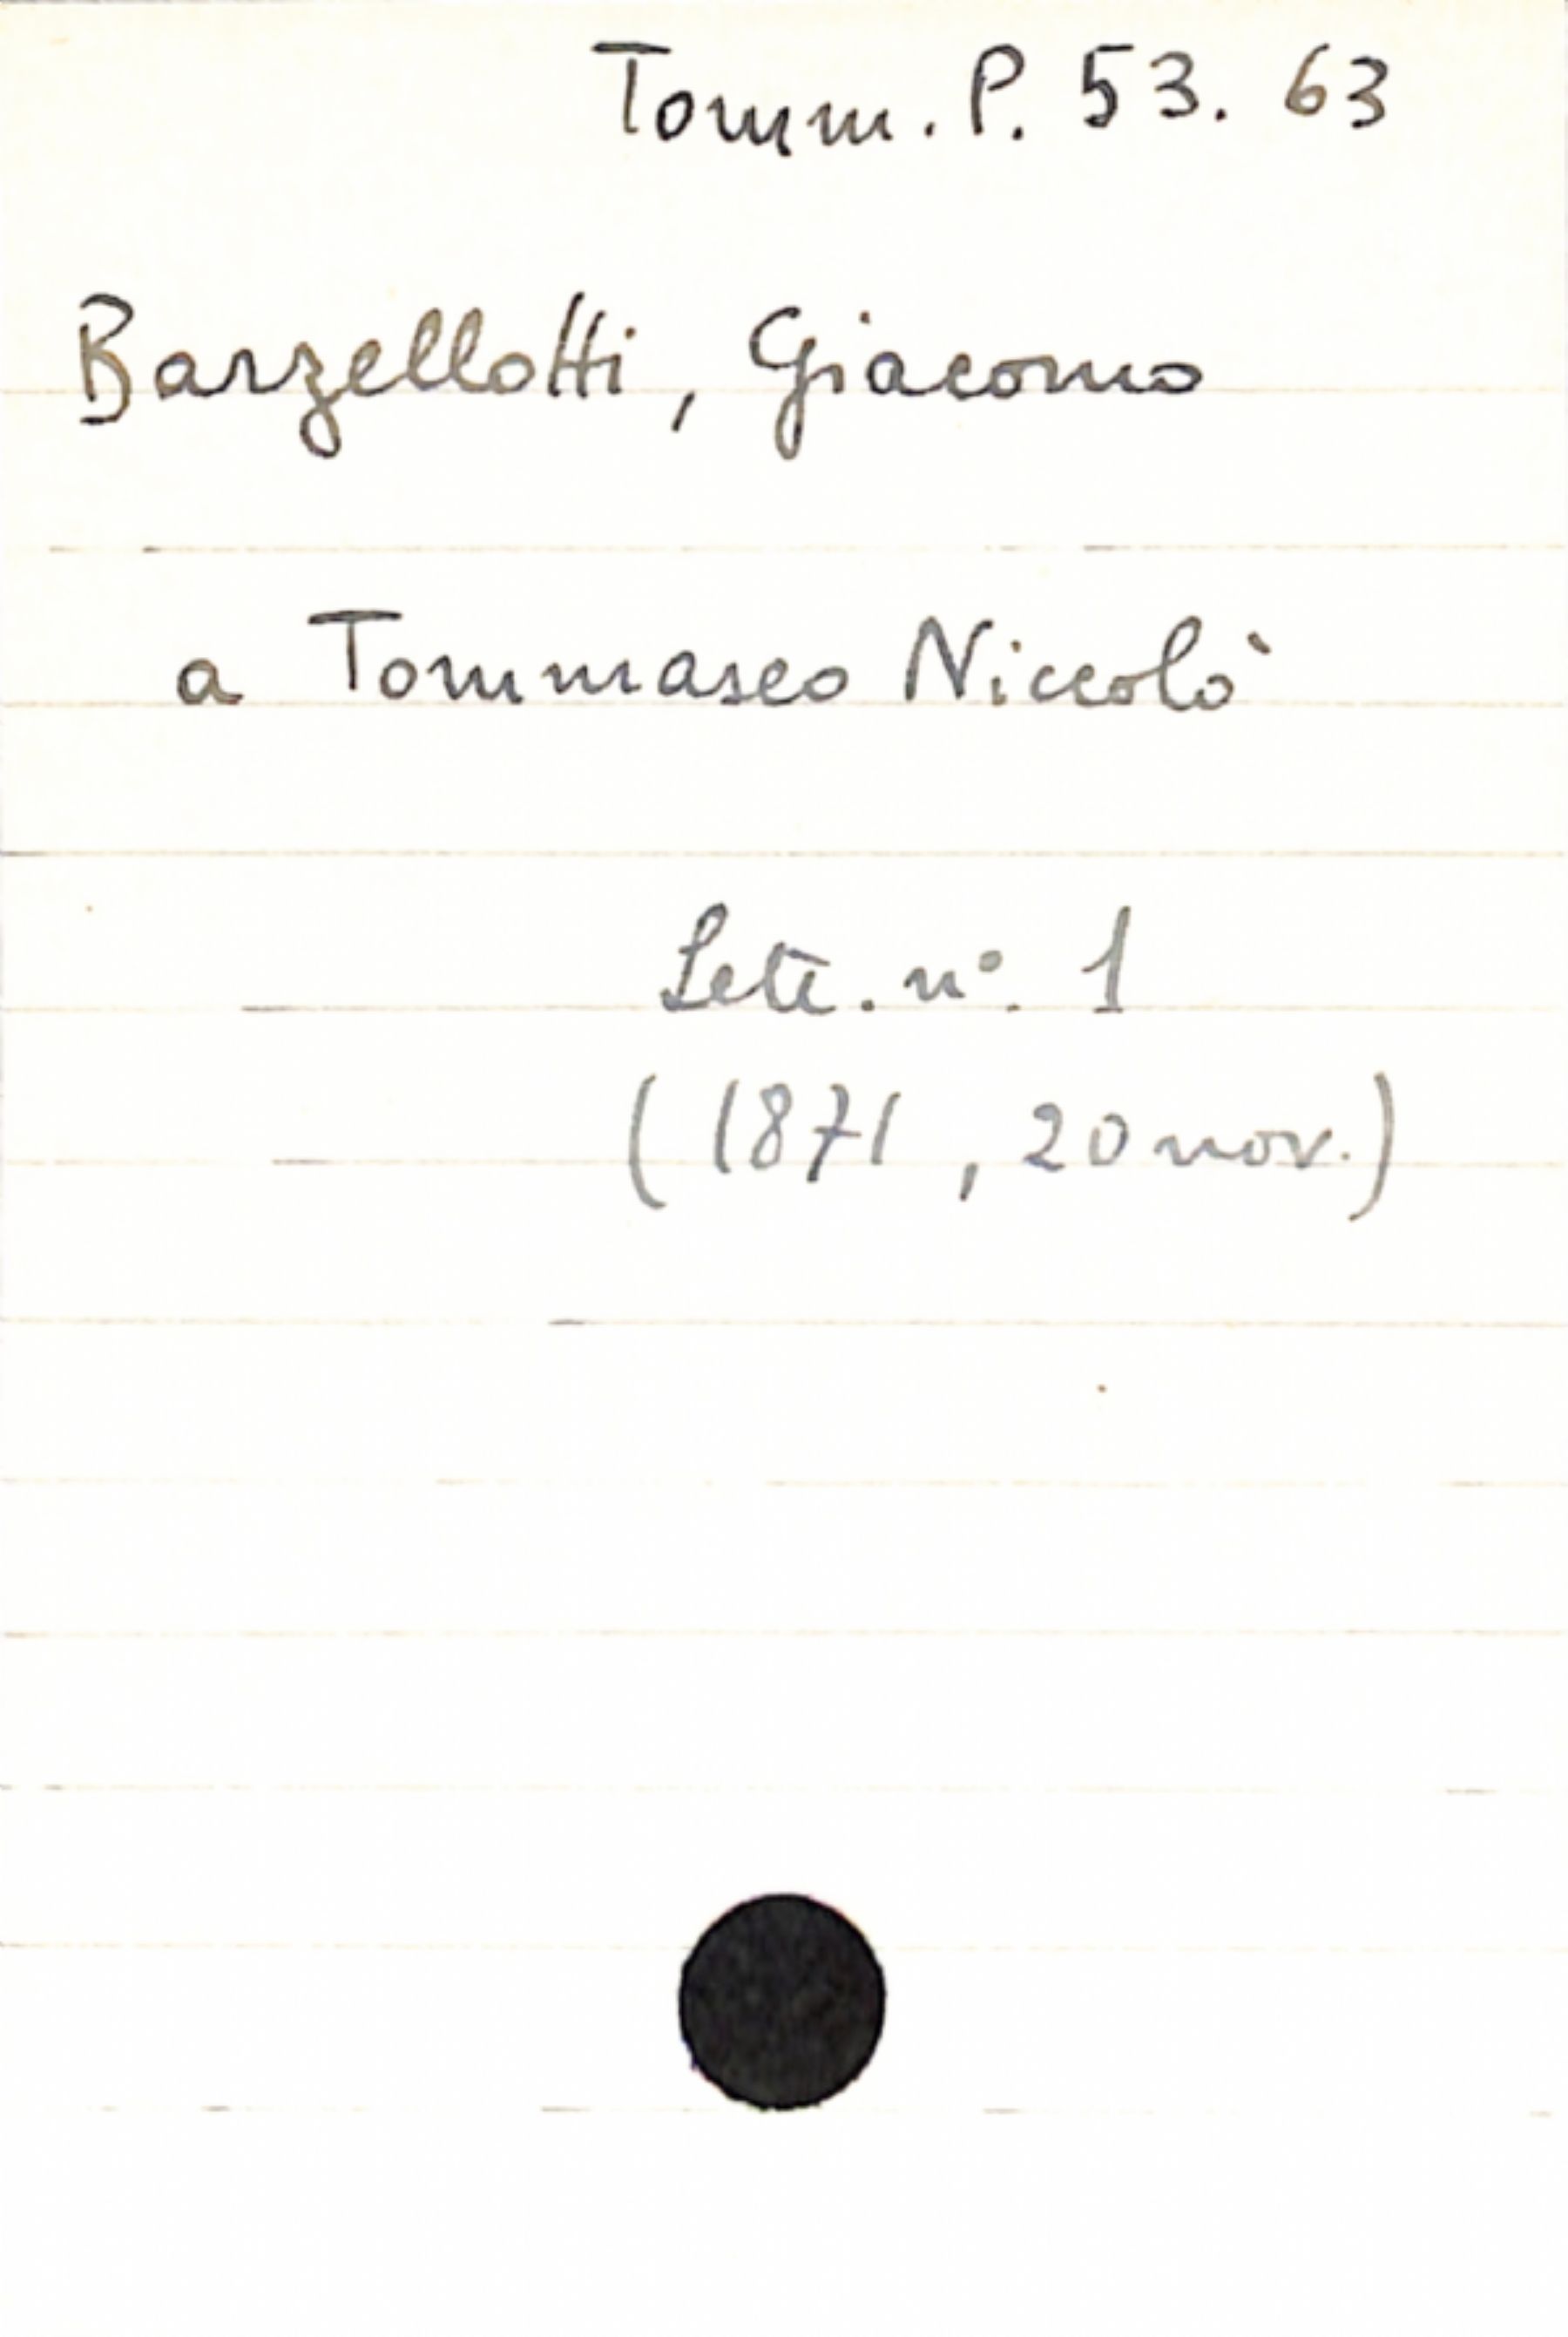 Tomm. P. 53. 63
Barzellotti, Giacomo
a Tommaseo Niccolò
Lett. n°. 1
(1871, 20 nov.)